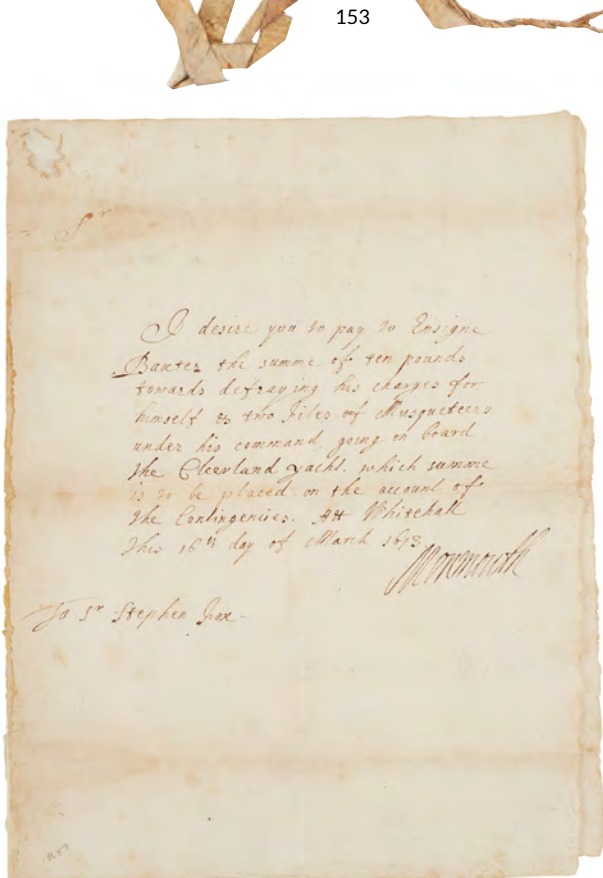 153
Sr
I desire you to pay to Ensigne
Baxter the summe of ten pounds
towards defraying his charges for
himself & two files of Musqueteers
under his command going on board
the Cleevland yacht. which summe
is to be placed on the account of
the Contingencies. Att Whitehall
this 16th day of March 1678
Monmouth
To Sr Stephen Fox